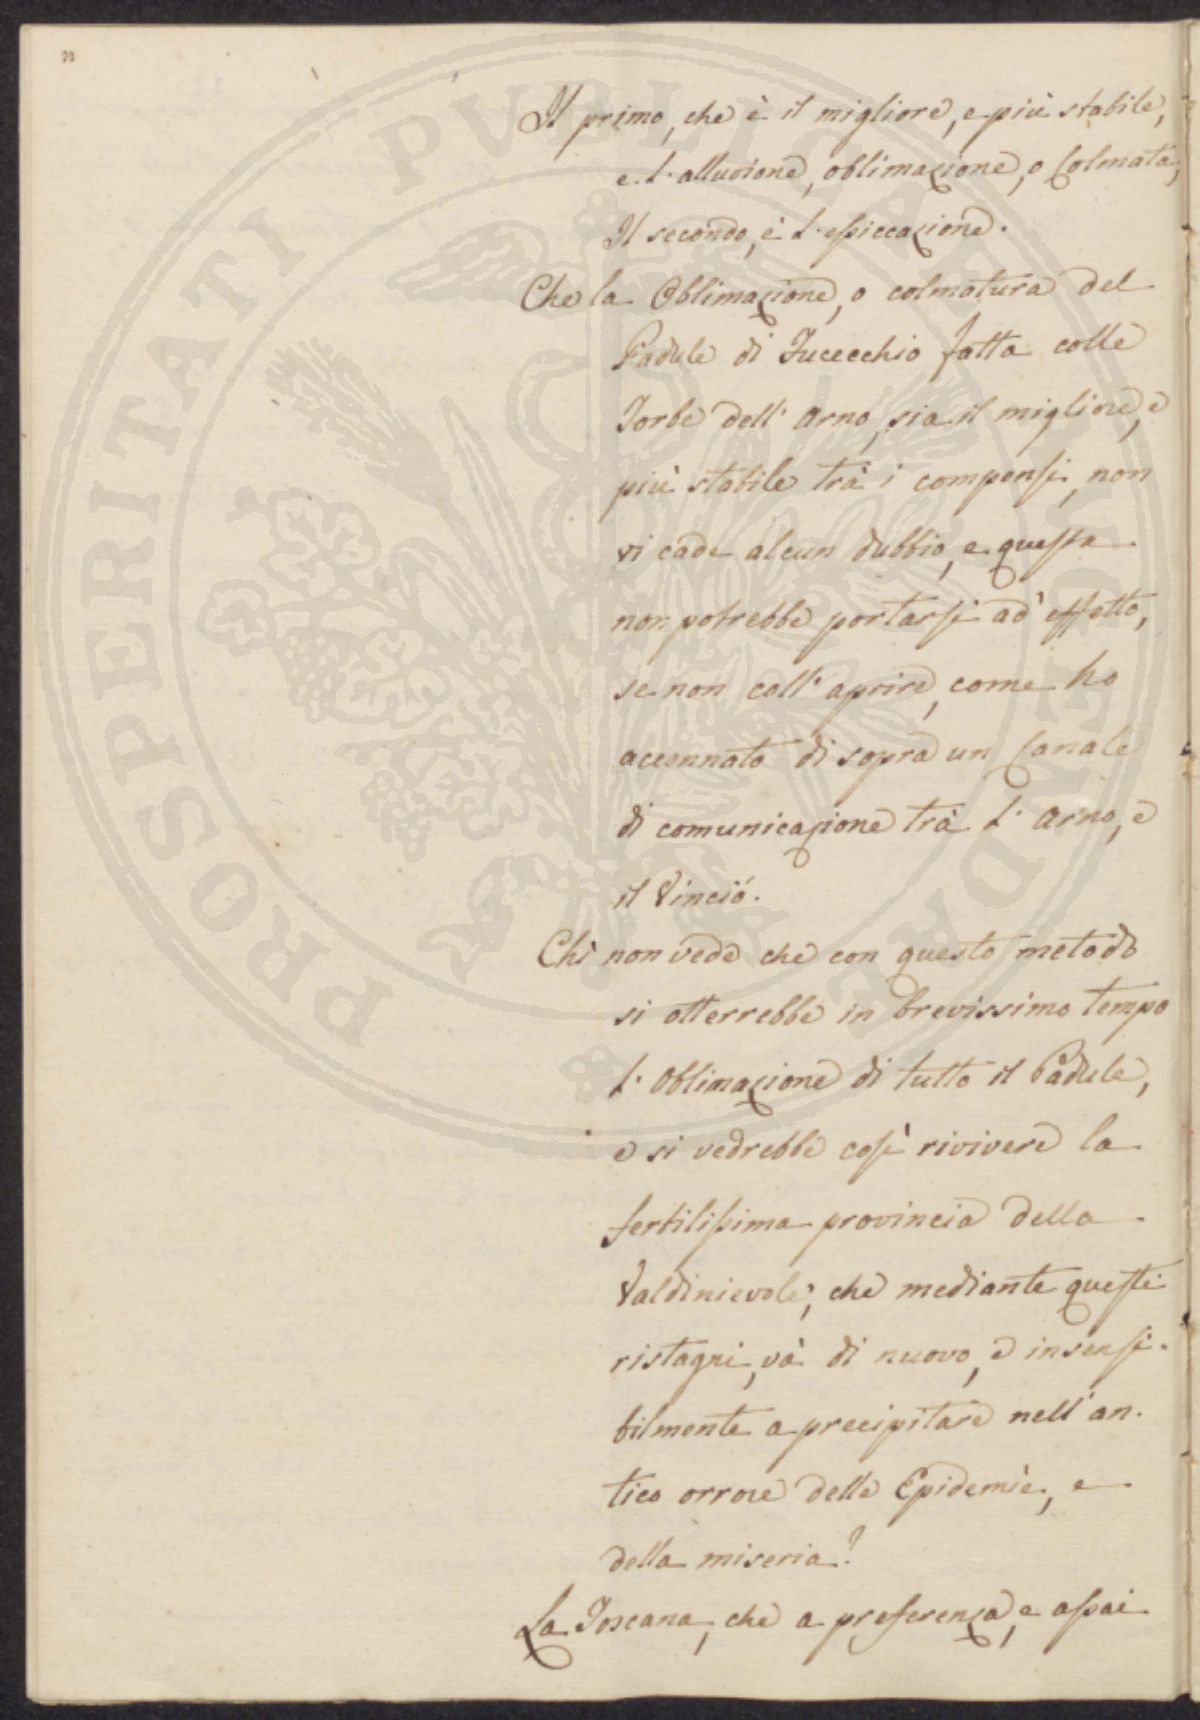 Il primo, che è il migliore, e più stabile,
e l'alluvione, oblimazione, o Colmata;
Il secondo, è l'essiccazione.
Che la Oblimazione, o colmatura del
Padule di Fucecchio fatta colle
Torbe dell'Arno, sia il migliore, e
più stabile trà i compensi, non
vi cade alcun dubbio, e questa
non potrebbe portarsi ad effetto,
se non coll'aprire, come ho
accennato di sopra un Canale
di comunicazione trà l'Arno, e
il Vinció.
Chi non vede che con questo metodo
si otterrebbe in brevissimo tempo
l'Oblimazione di tutto il Padule,
e si vedrebbe così rivivere la
fertilissima provincia della
Valdinievole; che mediante questi
ristagni, và di nuovo, e insensi-
bilmente a precipitare nell'an-
tico orrore delle Epidemie, e
della miseria?
La Toscana, che a preferenza, e assai
PROSPERITATI PUBLICAE AUGENDAE